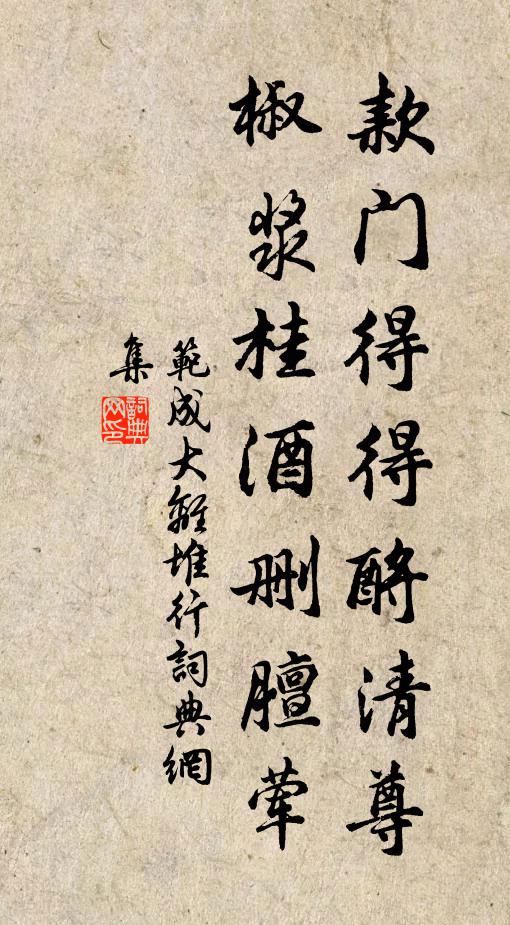 款门得得酹清尊
椒浆桂酒删膻荤
範成大離堆行詞典網
集
詞典网印